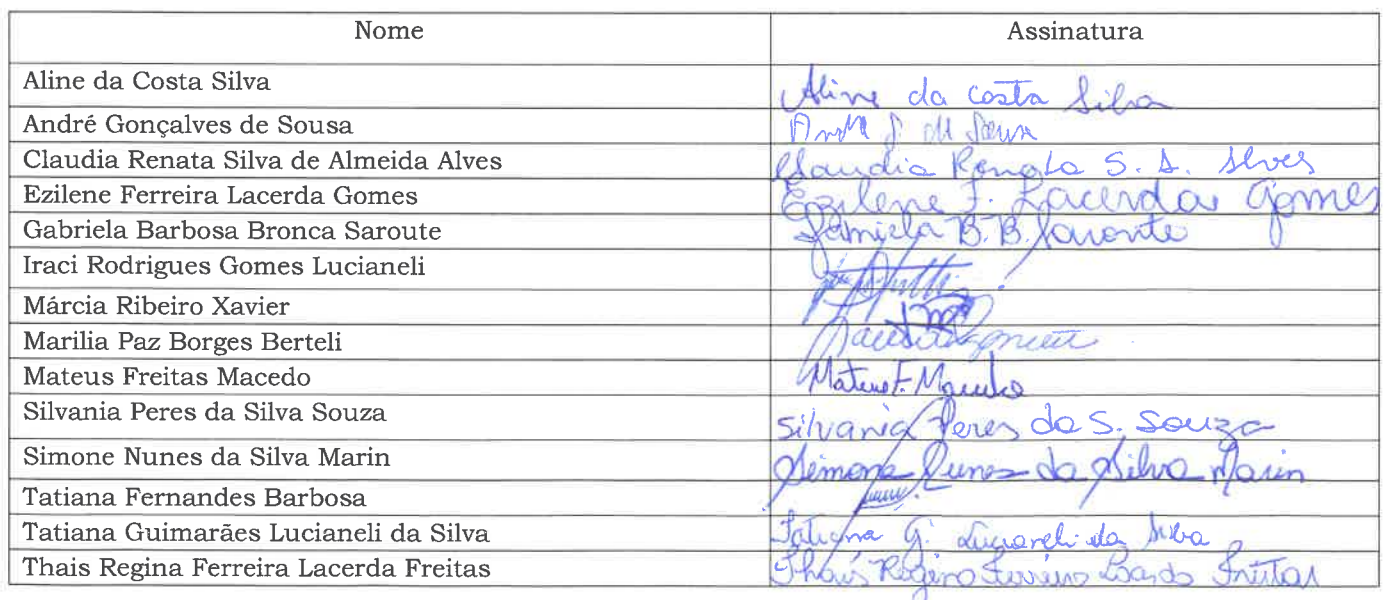 Nome Assinatura
Aline da Costa Silva Aline da Costa Silva
André Gonçalves de Sousa André G. de Sousa
Claudia Renata Silva de Almeida Alves Claudia Renata S. A. Alves
Ezilene Ferreira Lacerda Gomes Ezilene F. Lacerda Gomes
Gabriela Barbosa Bronca Saroute B. B. Saroute
Iraci Rodrigues Gomes Lucianeli
Márcia Ribeiro Xavier
Marilia Paz Borges Berteli
Mateus Freitas Macedo Mateus F. Macedo
Silvania Peres da Silva Souza Silvania Peres da S. Souza
Simone Nunes da Silva Marin Simone Nunes da Silva Marin
Tatiana Fernandes Barbosa
Tatiana Guimarães Lucianeli da Silva Tatiana G. Lucianeli da Silva
Thais Regina Ferreira Lacerda Freitas Thais Regina Ferreira Lacerda Freitas